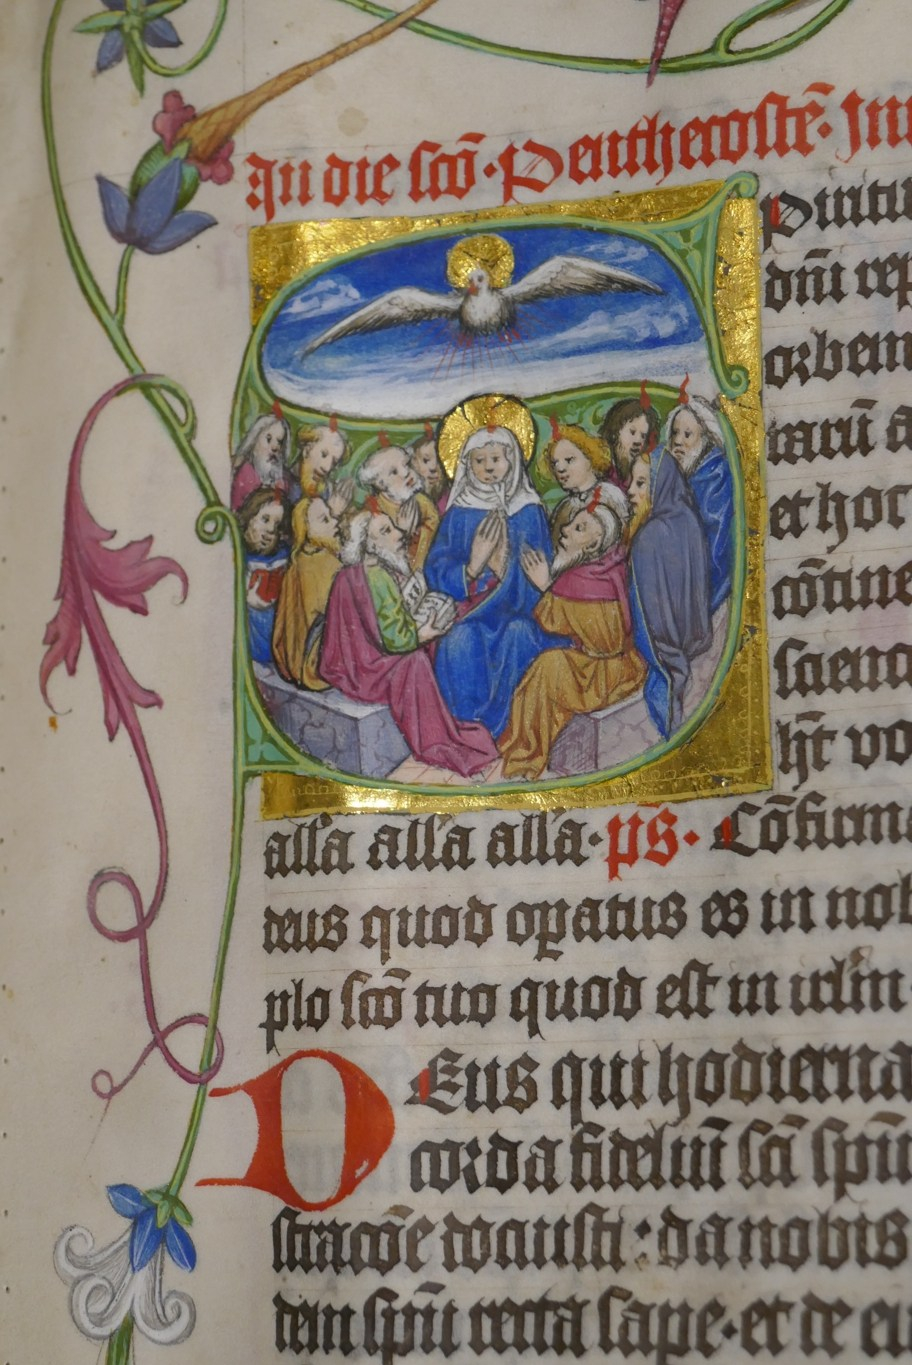 In die scō · Penthecostē · Int
Spiritu
dn̄i rep
orbem
rarū a
et hoc
cōtine
scienc
h̄t vo
all'a all'a all'a · ps · Cōfirma
deus quod oꝑatus es in nob
plo scō tuo quod est in irl'm
DEus qui hodierna
corda fidelīū sc̄i sp̄us
stracōe docuisti : da nobis
dem sp̄u recta sape · et de eiu